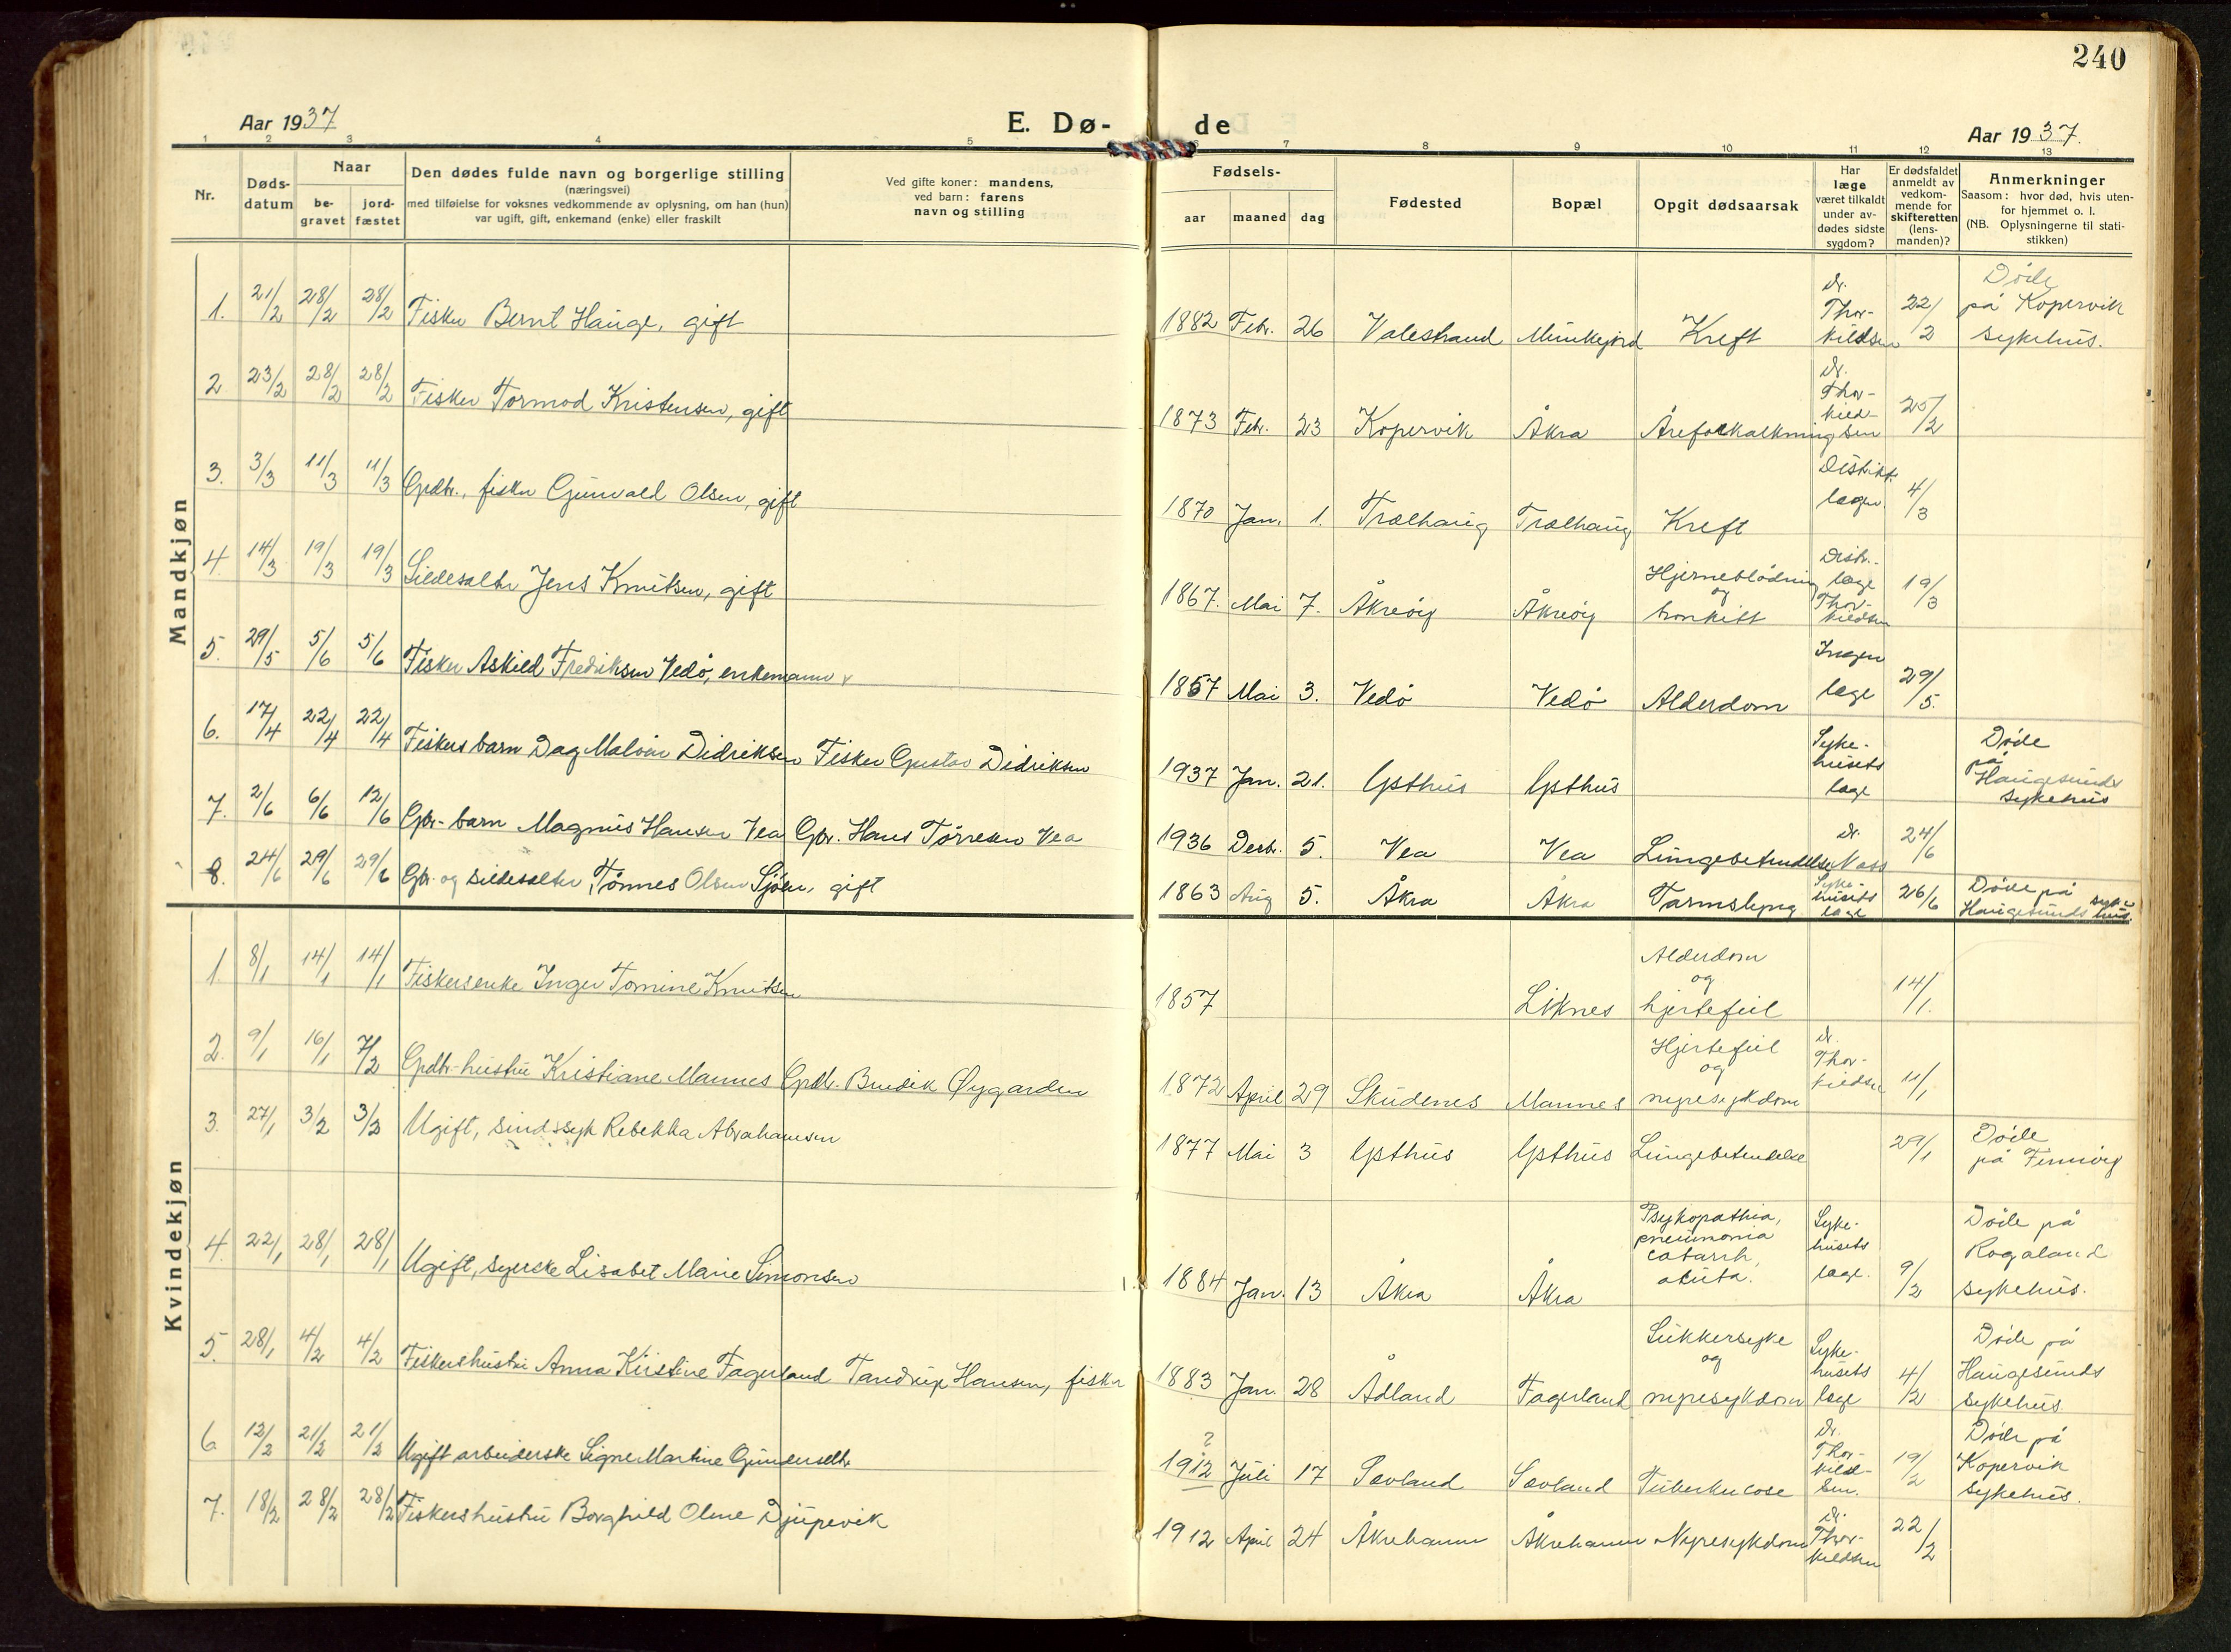 240
Aar 1937
E. Dø-
de
Aar 1937.
1 2 3 4 5
6 7 8 9 10 11 12 13
Nr.
Døds-
datum
Naar
be-
gravet
jord-
fæstet
Den dødes fulde navn og borgerlige stilling
(næringsvei)
med tilføielse for voksnes vedkommende av oplysning, om han (hun)
var ugift, gift, enkemand (enke) eller fraskilt
Ved gifte koner: mandens,
ved barn: farens
navn og stilling
Fødsels-
aar
maaned
dag
Fødested
Bopæl
Opgit dødsaarsak
Har
læge
været tilkaldt
under av-
dødes sidste
sygdom?
Er dødsfaldet
anmeldt av
vedkom-
mende for
skifteretten
(lens-
manden)?
Anmerkninger
Saasom: hvor død, hvis uten-
for hjemmet o. l.
(NB. Oplysningerne til stati-
stikken)
Mandkjøn
1. 21/2 28/2 28/2 Fisker Bernt Hauge, gift
1882 Febr. 26 Valestrand Munkejord Kreft Dr. Thor-kildsen 22/2 Døde på Kopervik sykehus.
2 23/2 28/2 28/2 Fisker Tormod Kristensen, gift
1873 Febr. 23 Kopervik Åkra Åreforkalkning Dr. Thor-kild-sen 25/2
3. 3/3 11/3 11/3 Grdbr., fisker Gunvald Olsen, gift
1870 Jan. 1. Trælhaug Trælhaug Kreft Distrikts lægen 4/3
4. 14/3 19/3 19/3 Sildesalter Jens Knutsen, gift
1867. Mai 7. Åkreøy Åkreøy Hjerneblødning og bronkitt Distr.-læge Thor-kildsen 19/3
5. 29/5 5/6 5/6 Fisker Askild Fredriksen Vedø, enkemann
1857 Mai 3. Vedø Vedø Alderdom Ingen læge 29/5.
6. 17/4 22/4 22/4 Fiskers barn Dag Malvin Didriksen Fisker Gustav Didriksen
1937 Jan. 21. Østhus Østhus Syke-husets læge Døde på Haugesunds sykehus
7. 2/6 6/6 12/6 Gbr.-barn Magnus Hansen Vea Gbr. Hans Tørresen Vea
1936 Desbr. 5. Vea Vea Lungebetendelse Dr. Vass 24/6
8. 24/6 29/6 29/6 Gbr. og sildesalter Tønnes Olsen Sjøen, gift
1863 Aug 5. Åkra Åkra Tarmslyng Syke-husets læge 26/6 Døde på Haugesunds sykehus.
Kvindekjøn
1. 8/1 14/1 14/1 Fiskersenke Inger Tomine Knutsen
1857 Liknes Alderdom og hjertefeil 14/1.
2. 9/1 16/1 7/2 Grdbr-hustru Kristiane Mannes Grdbr. Bendik Øygarden
1872 April 29 Skudenes Mannes Hjertefeil og nyresykdom Dr. Thor-kildsen 11/1
3. 27/1 3/2 3/2 Ugift, sindssyk Rebekka Abrahamsen
1877 Mai 3 Østhus Østhus Lungebetendelse 29/1 Døde på Fennøy
4. 22/1 28/1 28/1 Ugift, syerske Lisabet Marie Simonsen
1884 Jan. 13 Åkra Åkra Psykopathia, pneumonia catarrh, akuta. Syke-husets læge. 9/2 Døde på Rogaland sykehus.
5. 28/1 4/2 4/2 Fiskershustru Anna Kristine Fagerland Tandrup Hansen, fisker
1883 Jan. 28 Ådland Fagerland Sukkersyke og nyresykdom Syke-husets læge 4/2 Døde på Haugesunds sykehus.
6. 12/2 21/2 21/2 Ugift arbeiderske Signe Martine Gundersdtr.
? 1912 Juli 17 Sævland Sævland Tuberkulose Dr. Thor-kild-sen. 19/2 Døde på Kopervik sykehus.
7. 18/2 28/2 28/2 Fiskershustru Borghild Oline Djupevik
1912 April 24 Åkrehamn Åkrehamn Nyresykdom Dr. Thor-kildsen 22/2